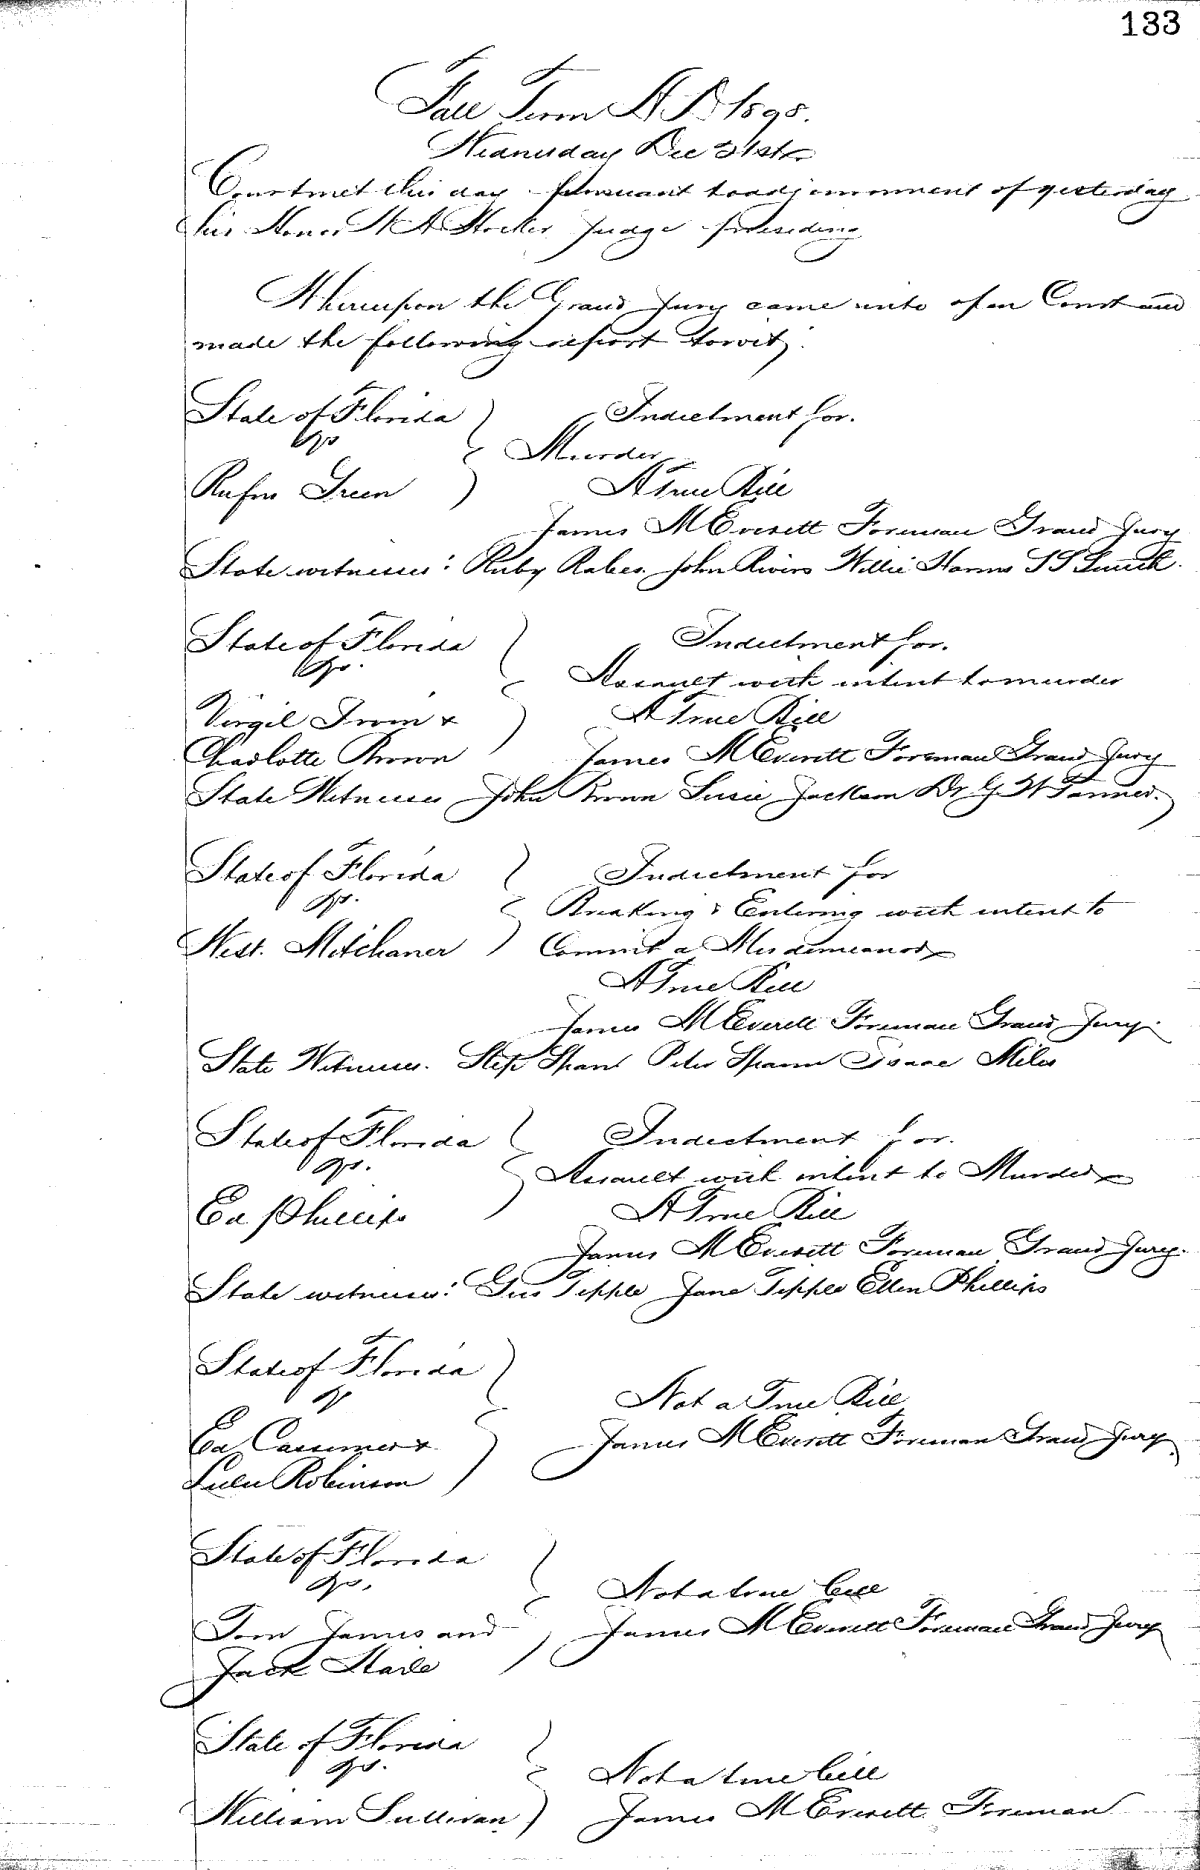 133
Fall Term A.D. 1898.
Wednesday Dec 21st
Court met this day pursuant to adjournment of yesterday
his Honor W A Hocker Judge presiding
Whereupon the Grand Jury came into open Court and
made the following report towit:
State of Florida Indictment for.
vs Murder
Rufus Green A True Bill
James M Everett Foreman Grand Jury
State witnesses: Ruby Raber John Rivers Willie Harris S S
State of Florida Indictment for.
vs. Assault with intent to murder
Virgil Irvin & A True Bill
Charlotte Brown James M Everett Foreman Grand Jury
State Witnesses John Brown Susie Jackson Dr G W Tanner.
State of Florida Indictment for
vs. Breaking & Entering with intent to
West. Mitchaner Commit a Misdemeanor
A True Bill
James M Everett Foreman Grand Jury.
State Witnesses. Step Span Peter Spann Isaac Miles
State of Florida Indictment for.
vs. Assault with intent to Murder
Ed Phillips A True Bill
James M Everett Foreman Grand Jury.
State witnesses: Gus Tipple Jane Tipple Ellen Phillips
State of Florida
vs Not a True Bill
Ed & James M Everett Foreman Grand Jury
Lulu Robinson
State of Florida
vs. Not a true bill
Tom James and James M Everett Foreman Grand Jury
Jack
State of Florida
vs. Not a true bill
William Sullivan James M Everett Foreman